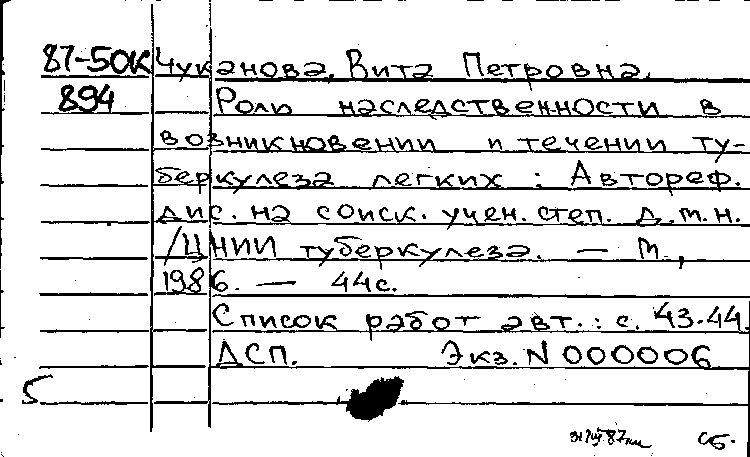 87-50К Чуканова, Вита Петровна.
894 Роль наследственности в
возникновении и течении ту-
беркулеза легких : Автореф.
дис. на соиск. учен. степ. д.м.н.
/ЦНИИ туберкулеза. — М.,
1986. — 44с.
Список работ авт.: с. 43-44.
ДСП. Экз. N 000006
5
сб.